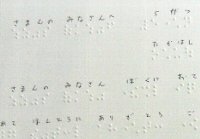 さまんの みなさんへ　５がつ
たかはし
さまんの みなさん ぼくに おて
あて ほんとうに ありがとう ご